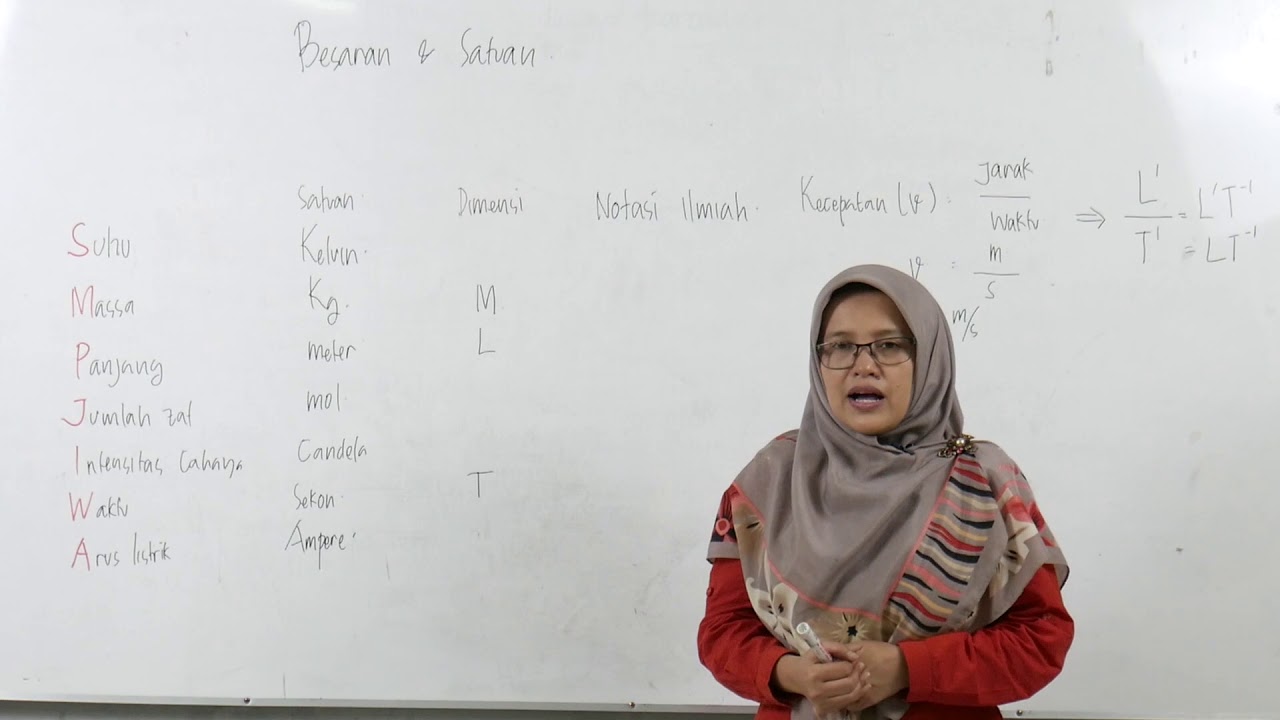 Besaran & Satuan.
Satuan Dimensi Notasi Ilmiah. Kecepatan (v) : Jarak / Waktu ⇒ L¹ / T¹ = L¹T⁻¹
= LT⁻¹
Suhu Kelvin. v : m / s
Massa Kg. M m/s
Panjang meter L
Jumlah zat mol.
Intensitas Cahaya Candela
Waktu Sekon. T
Arus listrik Ampere.